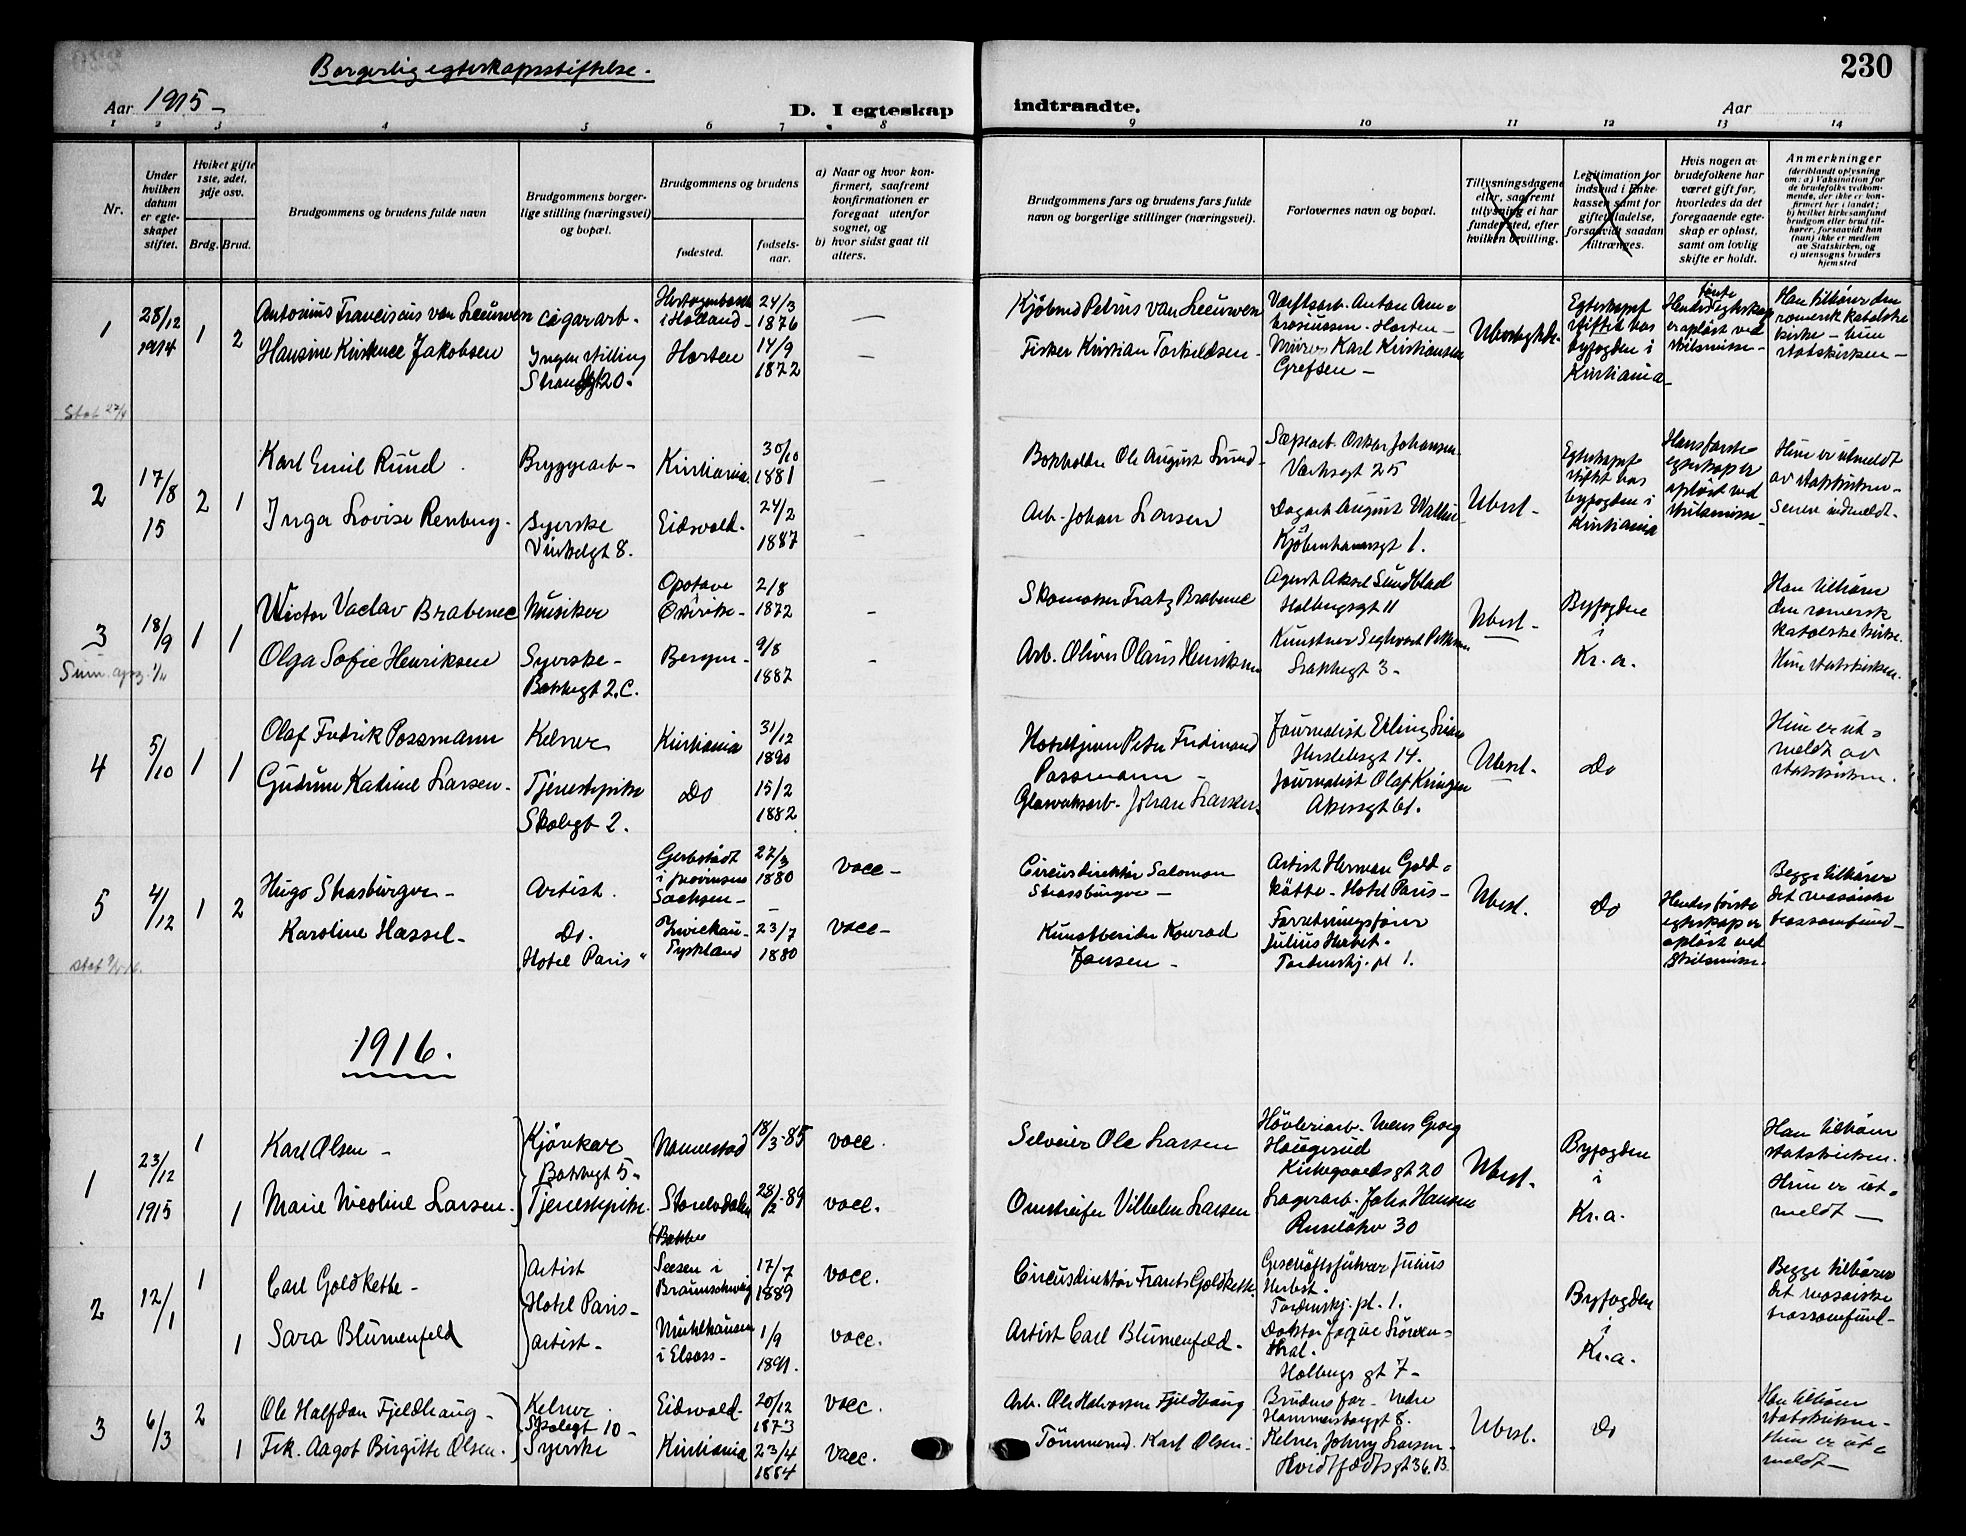 230
Borgerlig egteskapsstiftelse.
Aar 1915 –
D. I egteskap
indtraadte.
Aar
1 2 3 4 5 6 7 8 9 10 11 12 13 14
Nr.
Under hvilken datum er egteskapet stiftet.
Hviket gifte 1ste, 2det, 3dje osv.
Brdg. Brud.
Brudgommens og brudens fulde navn
Brudgommens borgerlige stilling (næringsvei) og bopæl.
Brudgommens og brudens
fødested.
fødselsaar.
a) Naar og hvor konfirmert, saafremt konfirmationen er foregaat utenfor sognet, og
b) hvor sidst gaat til alters.
Brudgommens fars og brudens fars fulde navn og borgerlige stillinger (næringsvei).
Forlovernes navn og bopæl.
Tillysningsdagene eller, saafremt tillysning ei har funder sted, efter hvilken bevilling.
Legitimation for indskud i Enkekassen samt for giftetilladelse, forsaavidt saadan tiltrænges.
Hvis nogen av brudefolkene har været gift før, hvorledes da det foregaaende egteskap er opløst, samt om lovlig skifte er holdt.
Anmerkninger (deriblandt oplysning om: a) Vaksination for de brudefolks vedkommende, der ikke er konfirmert her i landet; b) hvilket kirkesamfund brudgom eller brud tilhører, forsaavidt han (hun) ikke er medlem av Statskirken, og c) utensogns bruders hjemsted
1
28/12 1914
1 2
Antonius Franciscus van Leeuwen
cigararb.
Hertogenbosch i Holland –
24/3 1876
–
Kjøbmd Petrus van Leeuwen
Værftsarb. Anton Ambrosiussen. Horten –
Ubesl.
Egteskapet stiftet hos byfogden i Kristiania –
Hendes første egteskap er opløst ved skilsmisse –
Han tilhører den romersk katolske kirke – hun statskirken –
Hansine Kirstine Jakobsen
Ingen stilling
Strandgt 20.
Horten
14/9 1872
–
Fisker Kristian Torkildsen –
Murer Karl Kristiansen
Grefsen –
2
17/8 15
2 1
Karl Emil Ruud.
Bryggearb –
Kristiania
30/10 1881
–
Bokholder Ole August Ruud –
Sæpearb. Oskar Johansen
Verksgt 25
Ubesl –
Egteskapet stiftet hos byfogden i Kristiania
Hans første egteskap er opløst ved skilsmisse –
Hun er utmeldt av statskirken –
Senere indmeldt –
Inga Lovise Renberg –
Syerske
Vinkelgt 8.
Eidsvold –
24/2 1887
–
Arb. Johan Larsen
Kjøbenhavnsgt 1.
3
18/9
1 1
Victor Vaclav Brabenec
Musiker
Østrike –
2/8 1872
–
Skomaker Fratz Brabenec
Agent Aksel Sundblad
Holbergsgt 11
Ubesl –
Byfogden i Kr.a.
Han tilhører den romersk katolske kirke.
Hun statskirken.
Olga Sofie Henriksen
Syerske –
Bakkegt 2.C.
Bergen –
9/8 1887
–
Arb. Oliver Olaus Henriksen
Løkkegt 3 –
4
5/10
1 1
Olaf Fredrik Possmann
Kelner
Kristiania
31/12 1890
Hoteleier Peter Ferdinand Possmann –
Herslebsgt 14.
Ubesl –
Do
Hun er utmeldt av statskirken.
Gudrun Katinel Larsen –
Tjenestepike
Skolegt 2.
Do
15/2 1882
Glasverksarb. Johan Larsen
Journalist Olaf Kringen
Akersgt 61.
5
4/12
1 2
Hugo Strasburger –
Artist.
Gerbstädt i provinsen Sachsen –
27/3 1880
vacc –
Circusdirektør Salomon Strassburger –
Artist Herman Goldkette – Hotel Paris –
Ubesl.
Do
Hendes første egteskap er opløst ved skilsmisse.
Begge tilhører det mosaiske trossamfund –
Karoline Hassel –
Do.
Hotel Paris "
Zwickau – Tyskland
23/7 1880
vacc –
Kunstberider Konrad Jansen –
Forretningsfører Julius Herbst.
Tordenskj. pl 1.
1916.
1
23/12 1915
1
Karl Olsen –
Kjørekar
Bakkegt 5 –
18/3 – 85
vacc.
Selveier Ole Larsen
Høvleriarb. Jens Georg Haugerud
Kirkegaardsgt 20
Ubesl –
Byfogden i Kr.a.
Han tilhører statskirken.
Hun er utmeldt –
1
Marie Nicoline Larsen.
Tjenestepike.
28/2 – 89
vacc.
Omstreifer Vilhelm Larsen
Lagerarb. John Hansen
Ruseløkv 30
2
12/1
1
Carl Goldkette –
Artist
Hotel Paris –
Seesen i Braunschweig
17/7 1889
vacc.
Circusdirektør Frants Goldkette.
Geschäftsführer Julius Herbst.
Tordenskj. pl. 1.
Byfogden i Kr.a.
Begge tilhører det mosaiske trossamfund –
1
Sara Blumenfeld
artist –
Mühlhausen i Elsass –
1/9 1891.
vacc.
Artist Carl Blumenfeld –
Doktor Jaque Löwenthal.
Holbergs gt 7 –
3
6/3
2
Ole Halfdan Fjeldhaug –
Kelner
Skolegt 10 –
Eidsvold –
20/12 1873
vacc.
Arb. Ole Halvorsen Fjeldhaug
Brudens far – Nedre Hammersborggt 8.
Ubesl.
Do
Han tilhører statskirken –
Hun er utmeldt –
1
Frk. Aagot Birgitte Olsen.
Syerske
Kristiania
23/4 1884
vacc.
Tømmermd. Karl Olsen
Kelner Johny Larsen –
Hvidtfeldtsgt 36.B.